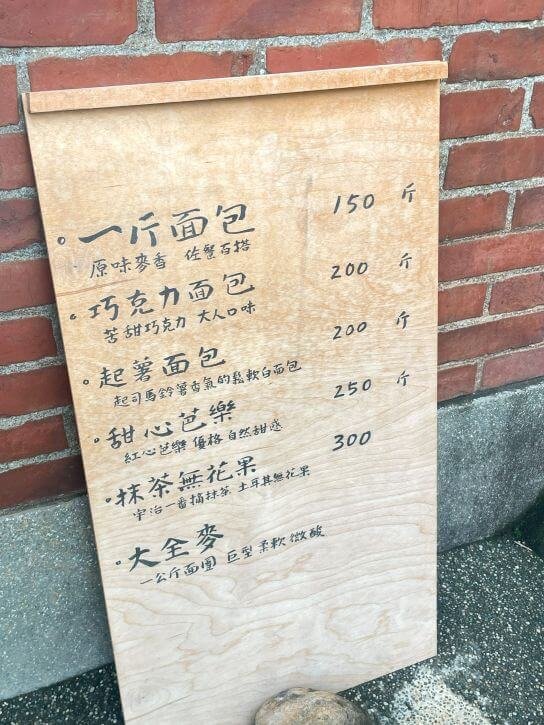 一斤面包 150 斤
原味麥香 佐餐百搭
巧克力面包 200 斤
苦甜巧克力 大人口味
起薯面包 200 斤
起司馬鈴薯香氣的鬆軟白面包
甜心芭樂 250 斤
紅心芭樂優格 自然甜感
抹茶無花果 300
宇治一番摘抹茶 土耳其無花果
大全麥
一公斤面團 巨型 柔軟 微酸